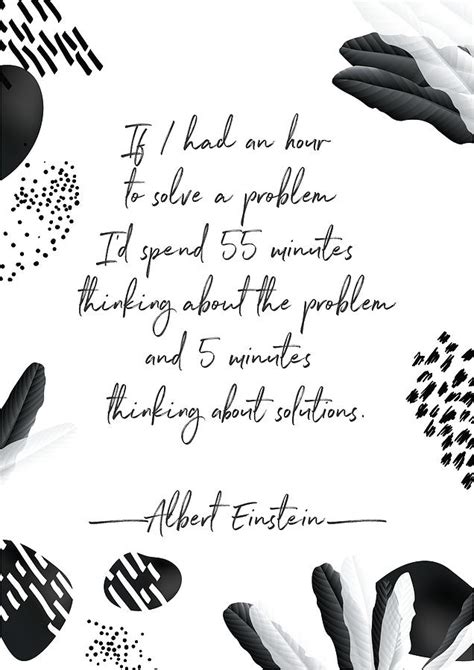 If I had an hour
to solve a problem
I'd spend 55 minutes
thinking about the problem
and 5 minutes
thinking about solutions.
Albert Einstein